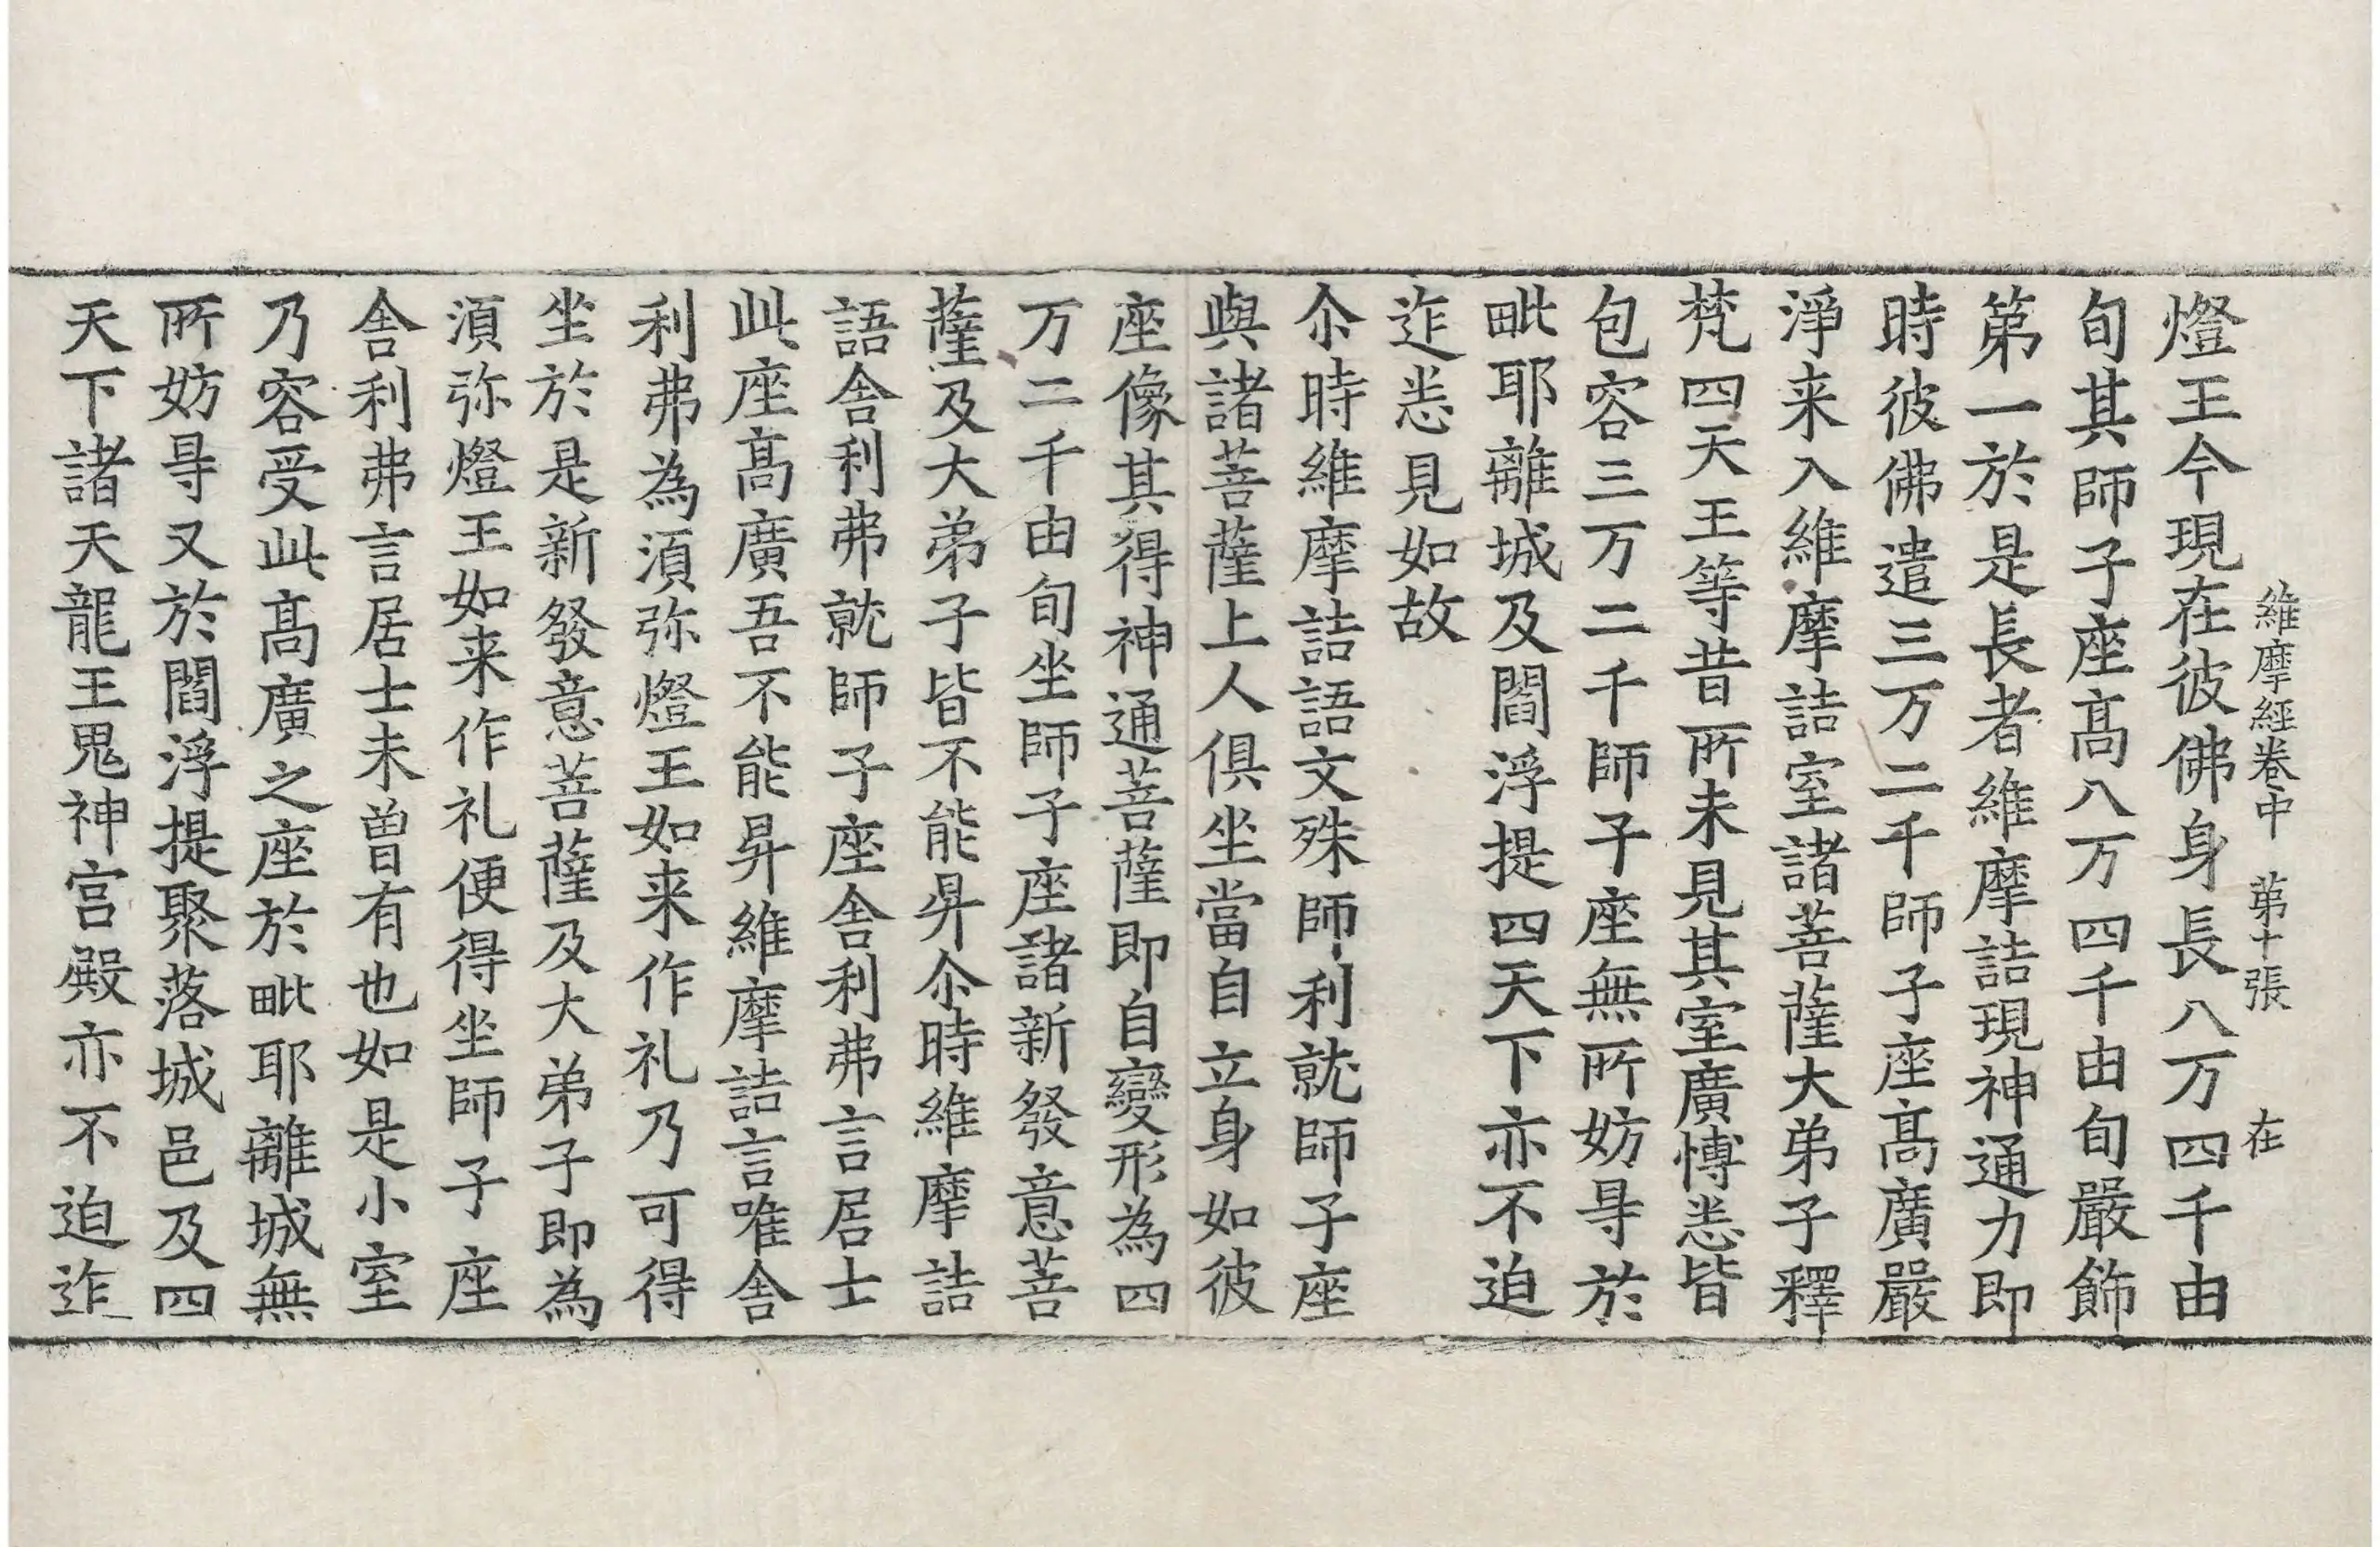 維摩經卷中 苐十張 在
燈王今現在彼佛身長八万四千由
旬其師子座髙八万四千由旬嚴飾
苐一於是長者維摩詰現神通力即
時彼佛遣三万二千師子座髙廣嚴
淨来入維摩詰室諸菩薩大弟子釋
梵四天王等昔所未見其室廣博悉皆
包容三万二千師子座無所妨㝵於
毗耶離城及閻浮提四天下亦不迫
迮悉見如故
尒時維摩詰語文殊師利就師子座
與諸菩薩上人俱坐當自立身如彼
座像其得神通菩薩即自變形為四
万二千由旬坐師子座諸新發意菩
薩及大弟子皆不能昇尒時維摩詰
語舍利弗就師子座舍利弗言居士
此座髙廣吾不能昇維摩詰言唯舍
利弗為湏弥燈王如来作礼乃可得
坐於是新發意菩薩及大弟子即為
湏弥燈王如来作礼便得坐師子座
舍利弗言居士未曽有也如是小室
乃容受此髙廣之座於毗耶離城無
所妨㝵又於閻浮提聚落城邑及四
天下諸天龍王鬼神宮殿亦不迫迮